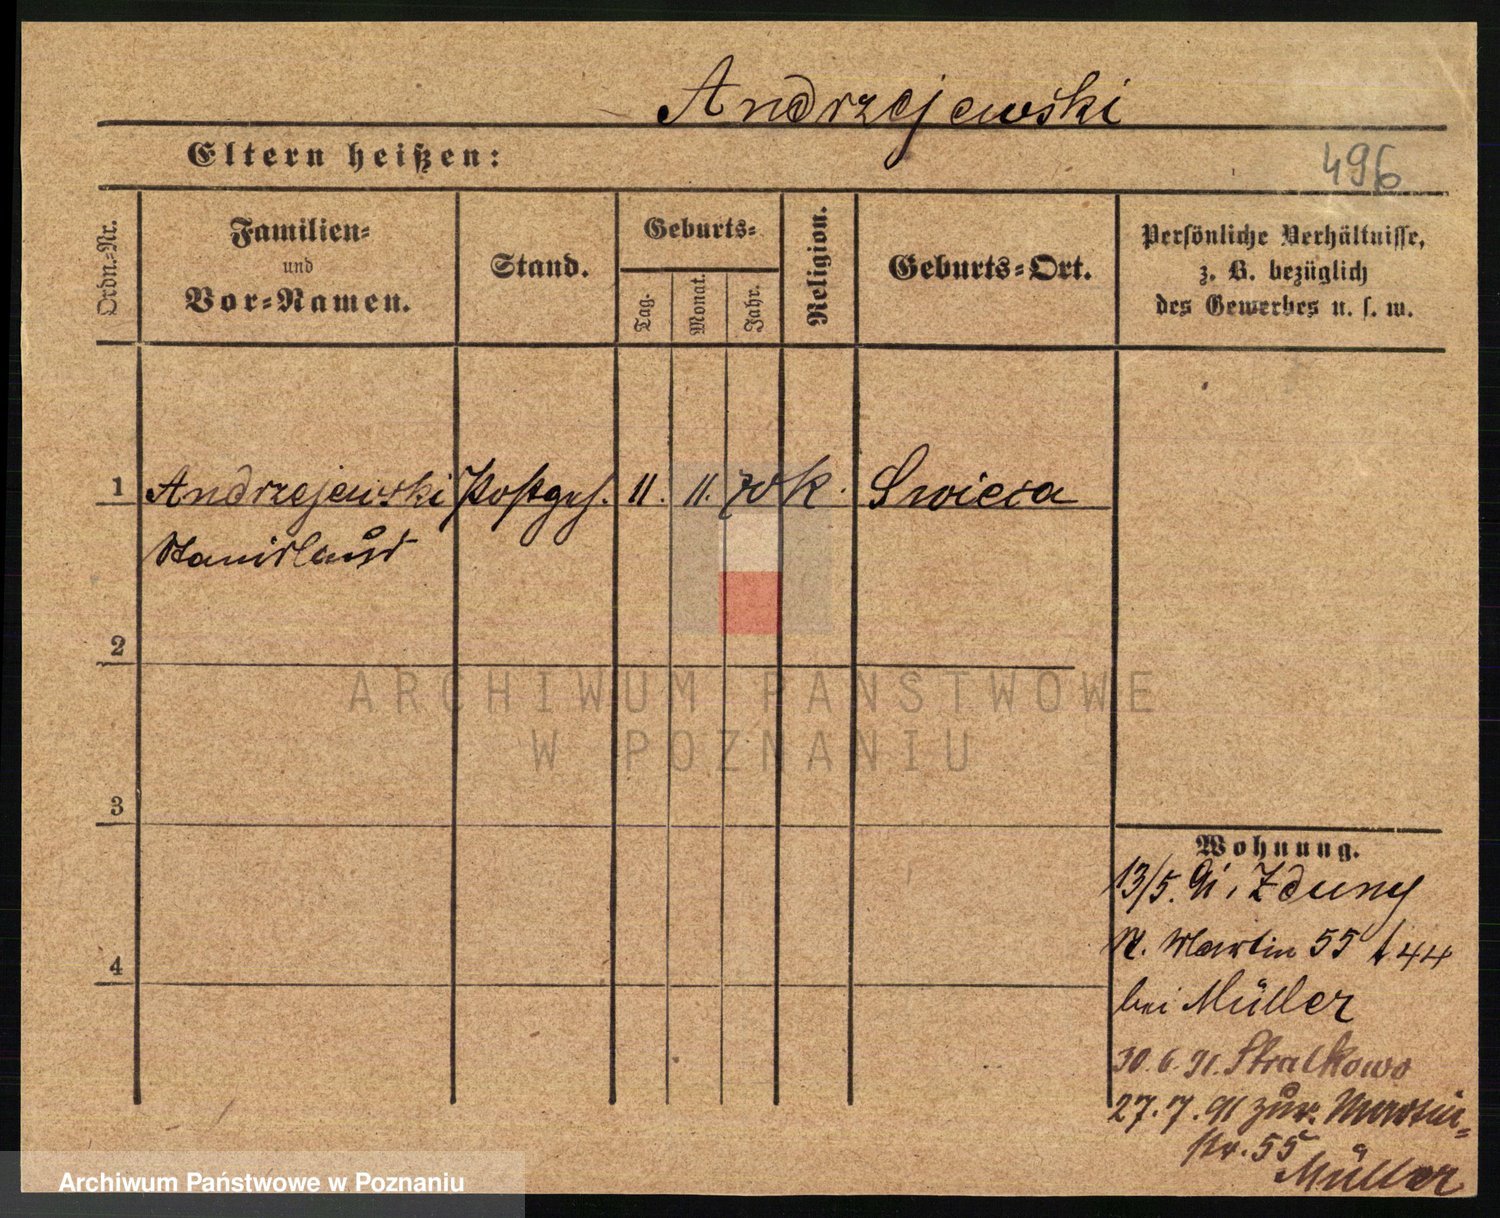 Andrzejewski
Eltern heißen:
496
Ordn.-Nr.
Familien-
und
Vor-Namen.
Stand.
Geburts-
Tag.
Monat.
Jahr.
Religion.
Geburts-Ort.
Persönliche Verhältnisse,
z. B. bezüglich
des Gewerbes u. s. w.
1 Andrzejewski Postgeh. 11. 11. 70 k. Swieca
Stanislaus
2
ARCHIWUM PAŃSTWOWE
W POZNANIU
3
4
Wohnung.
13/5. 91. Zduny
St. Martin 55 44
bei Müller
30.6.91. Stralkowo
27.7.91 zur. Martin-
str. 55
Müller
Archiwum Państwowe w Poznaniu